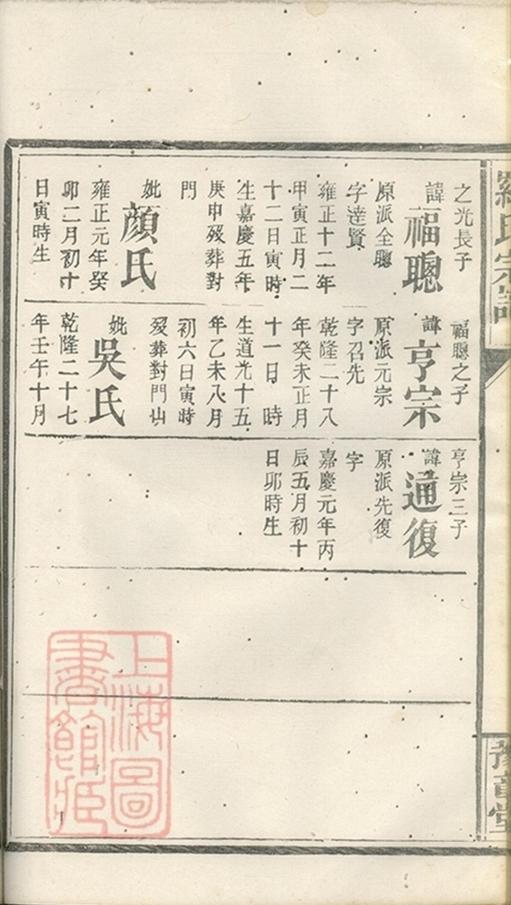 羅氏宗譜
之光長子
諱福聰
原派全聰
字達賢
雍正十二年
甲寅正月二
十二日寅時
生嘉慶五年
庚申歿葬對
門
妣顏氏
雍正元年癸
卯二月初十
日寅時生
福聰之子
諱亨宗
原派元宗
字召先
乾隆二十八
年癸未正月
十一日 時
生道光十五
年乙未八月
初六日寅時
歿葬對門山
妣吳氏
乾隆二十七
年壬午十月
亨宗三子
諱通復
原派先復
字
嘉慶元年丙
辰五月初十
日卯時生
豫章堂
上海圖
書館藏